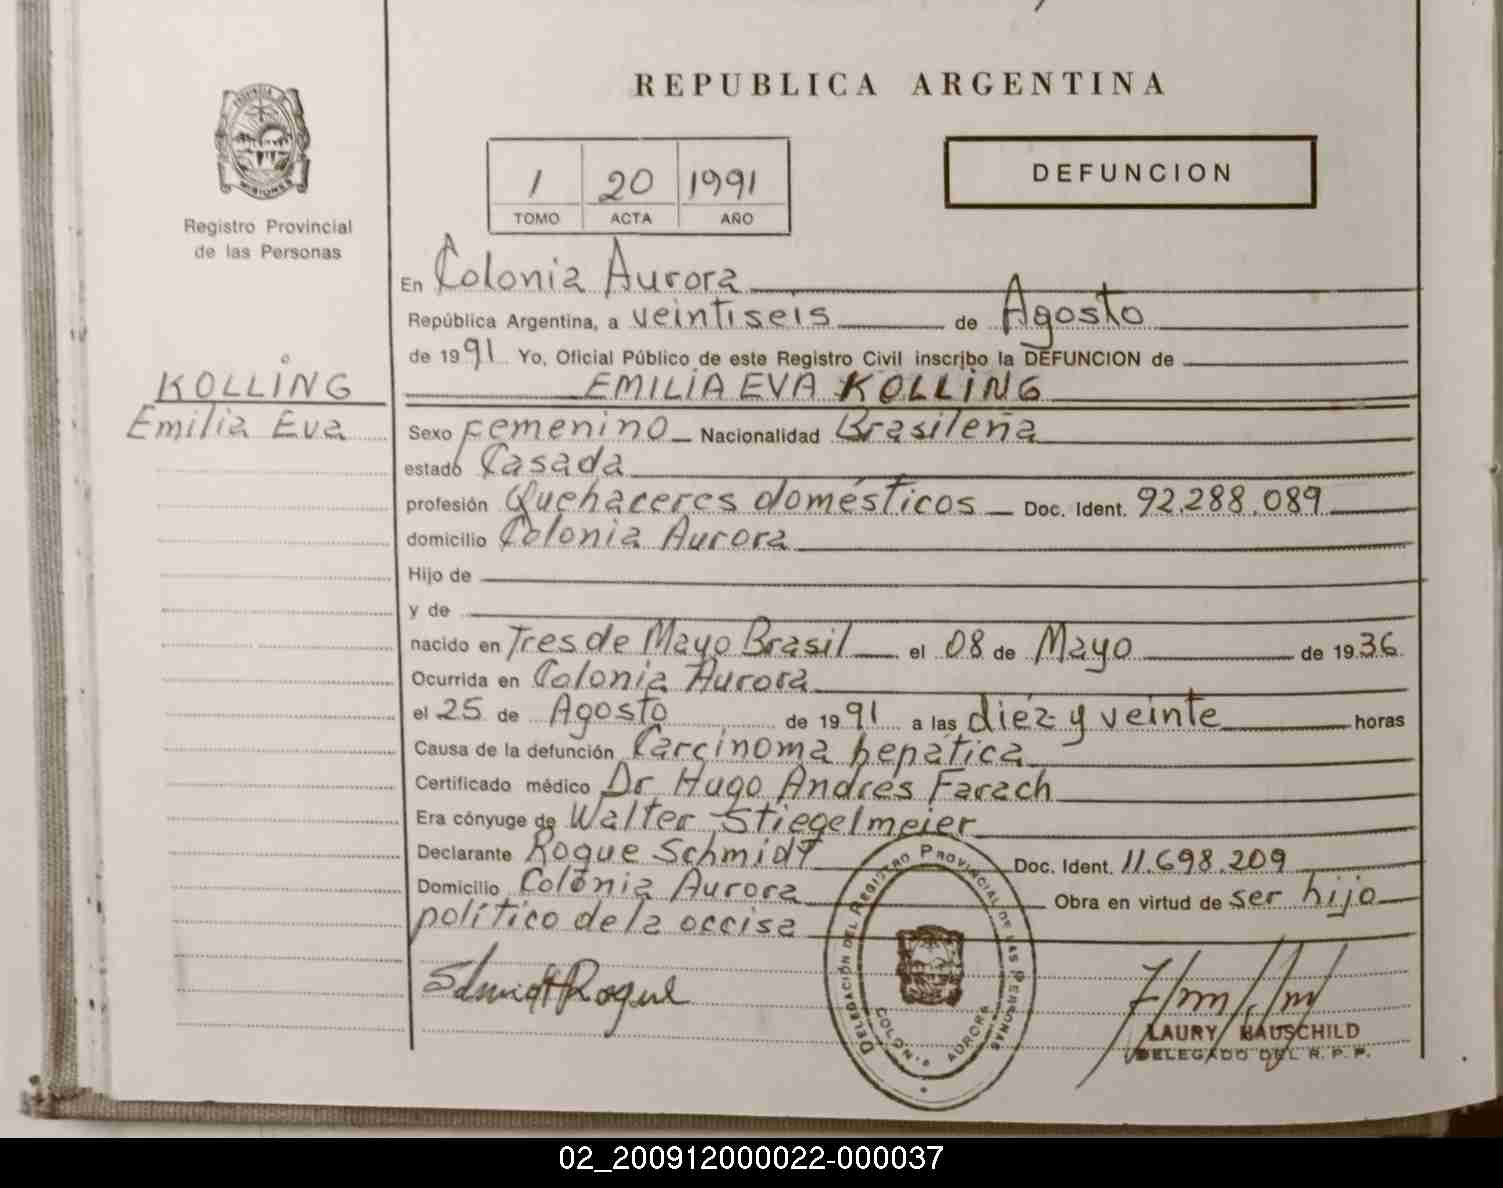 REPUBLICA ARGENTINA
PROVINCIA
MISIONES
Registro Provincial
de las Personas
1 20 1991
TOMO ACTA AÑO
DEFUNCION
En Colonia Aurora
República Argentina, a veintiseis de Agosto
de 1991 Yo, Oficial Público de este Registro Civil inscribo la DEFUNCION de
KOLLING
EMILIA EVA KOLLING
Emilia Eva
Sexo Femenino Nacionalidad Brasileña
estado Casada
profesión Quehaceres domésticos Doc. Ident. 92.288.089
domicilio Colonia Aurora
Hijo de
y de
nacido en Tres de Mayo Brasil el 08 de Mayo de 1936
Ocurrida en Colonia Aurora
el 25 de Agosto de 1991 a las diez y veinte horas
Causa de la defunción Carcinoma hepática
Certificado médico Dr Hugo Andres Farach
Era cónyuge de Walter Stiegelmeier
Declarante Roque Schmidt Doc. Ident. 11.698.209
Domicilio Colonia Aurora Obra en virtud de ser hijo
político de la occisa
Schmidt Roque
DELEGACIÓN DEL REGISTRO PROVINCIAL DE LAS PERSONAS
COLONIA AURORA
LAURY HAUSCHILD
DELEGADO DEL R. P. P.
02_200912000022-000037